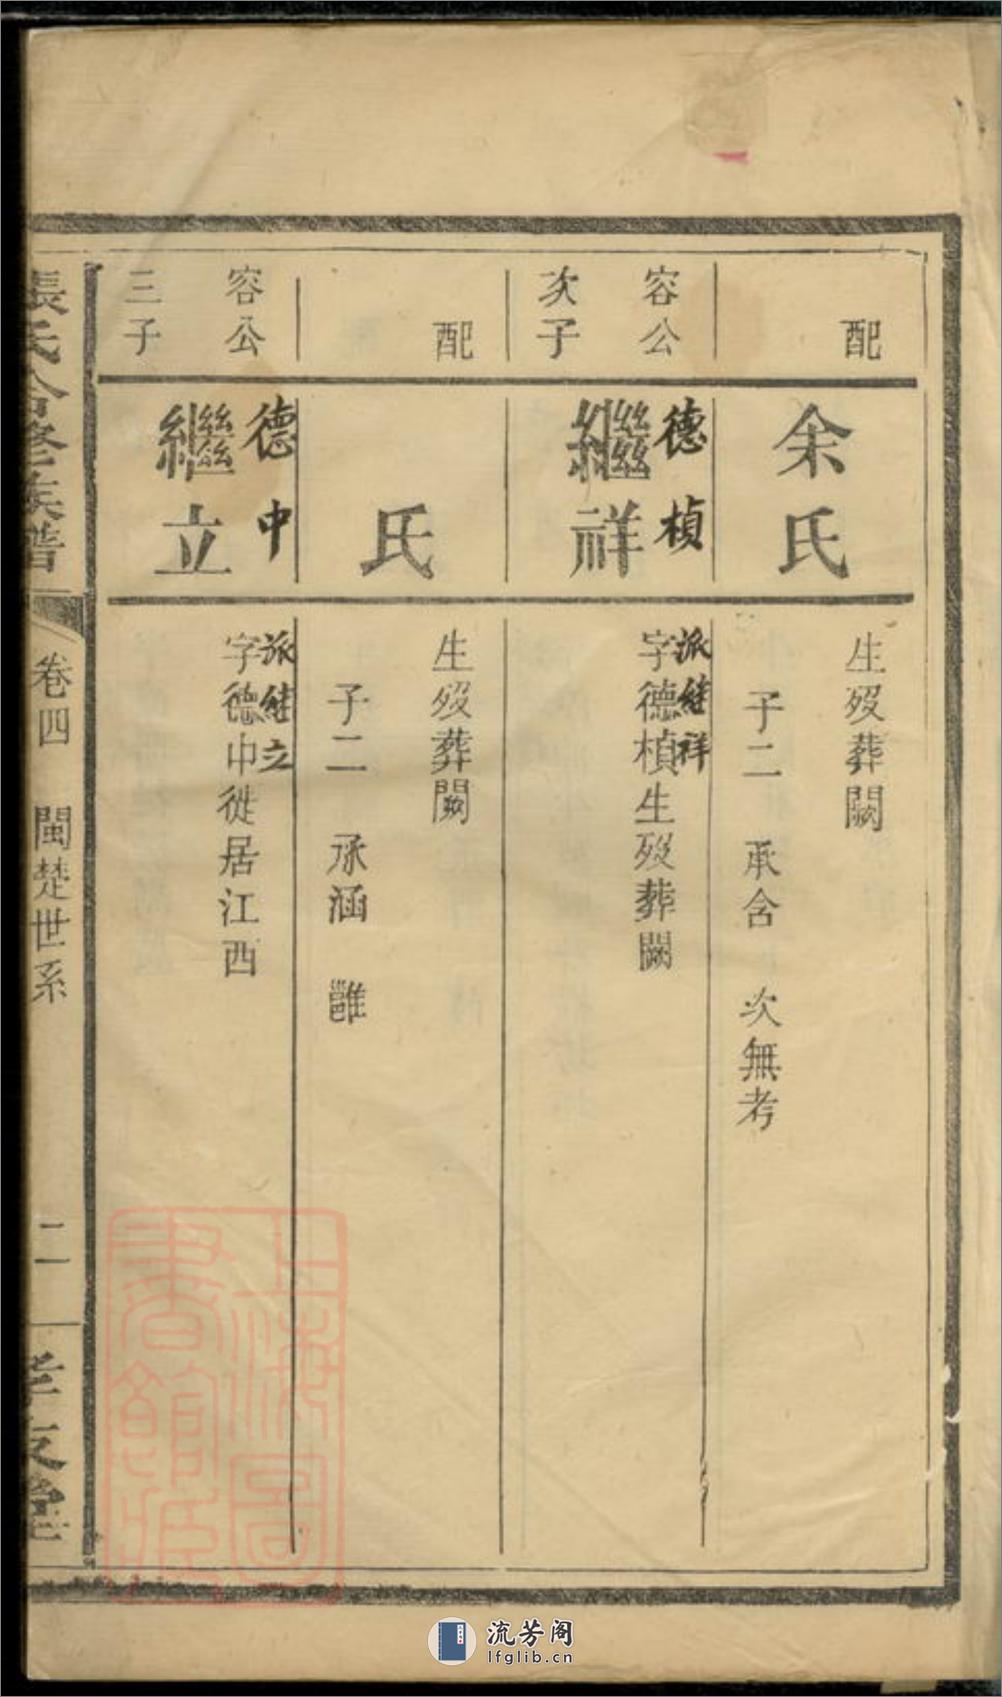 配
余氏
生歿葬闕
子二　承含　次無考
容公
次子
德楨
繼祥
派継祥
字德楨生歿葬闕
配
氏
生歿葬闕
子二　承涵　雝
容公
三子
德中
繼立
派継立
字德中徙居江西
張氏合修族譜
卷四　閩楚世系
二
孝友堂
上海圖
書館藏
流芳阁
lfglib.cn